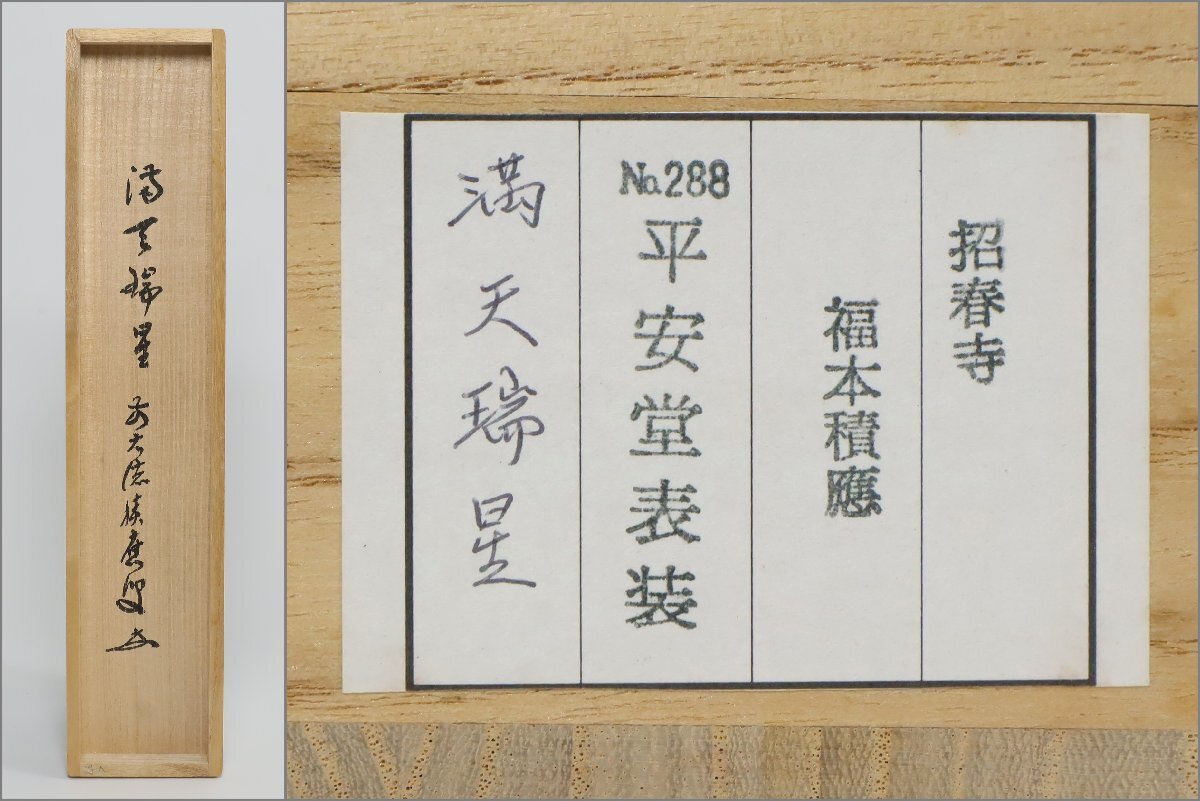 満天瑞星 前大徳積應叟
招春寺
福本積應
No.288
平安堂表装
満天瑞星